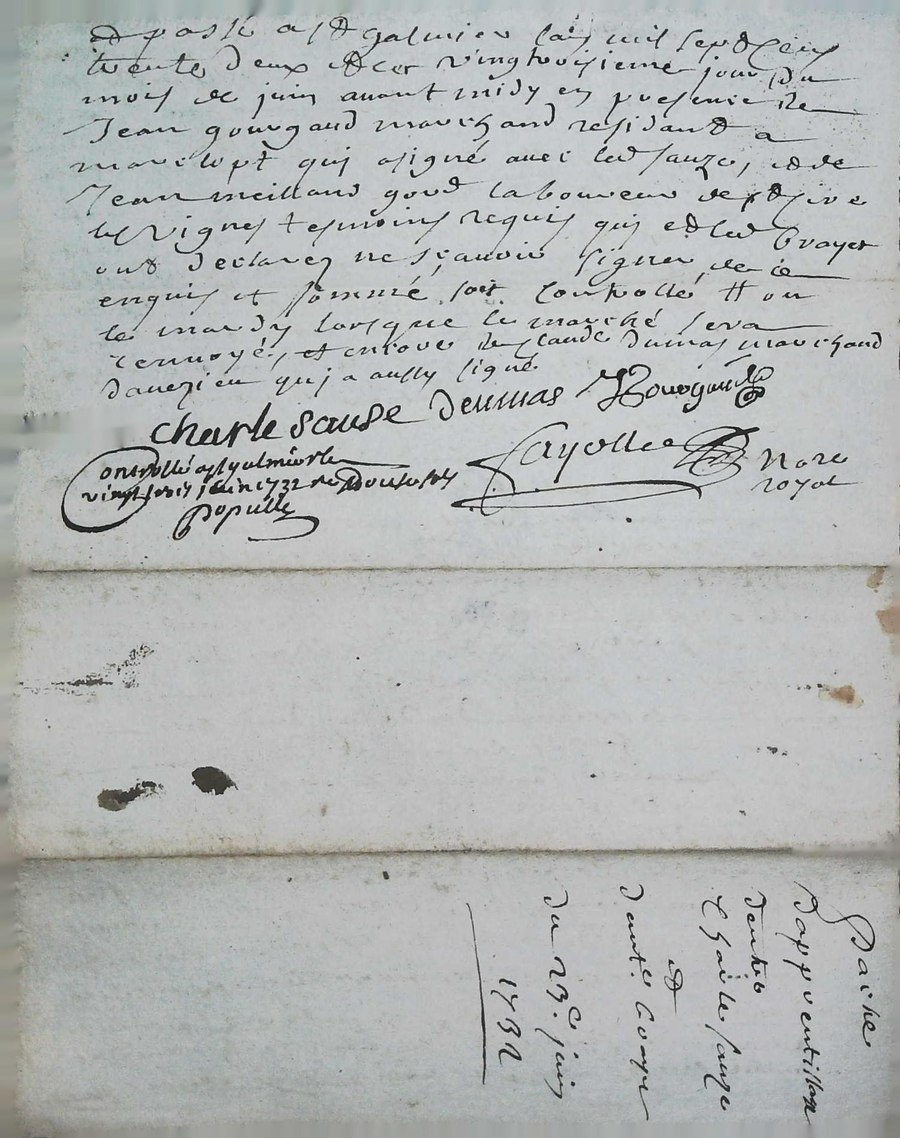 et passé a st galmier lan mil sept cent
trente deux et le vingtroisieme jour du
mois de juin avant midy en presence de
Jean gourgaud marchand residant a
marclopt qui a signé avec led sauze, et de
Jean meilland gové laboureur de st Sire
les vignes tesmoins requis qui et led Croyet
ont declarez ne sçavoir signer de ce
enquis et sommé soit controllé ou
le mardy lorsque le marché sera
renvoyé, et encore de claude dumas marchand
daveizieu qui a aussy signé
charle sause Deumas JGourgaud
Controllé a st galmier le
vingt trois juin 1732 re douse sols
populle
fayolle Nore
royal
Pache
dapprentissage
dentre
Charle sauze
et
dant.
du 23e. juin
1732